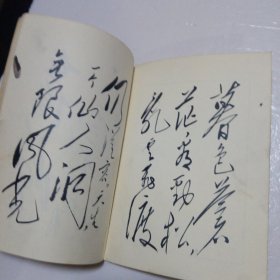 暮色苍
茫看劲松
乱云飞渡
仍从容天生
一个仙人洞
无限风光